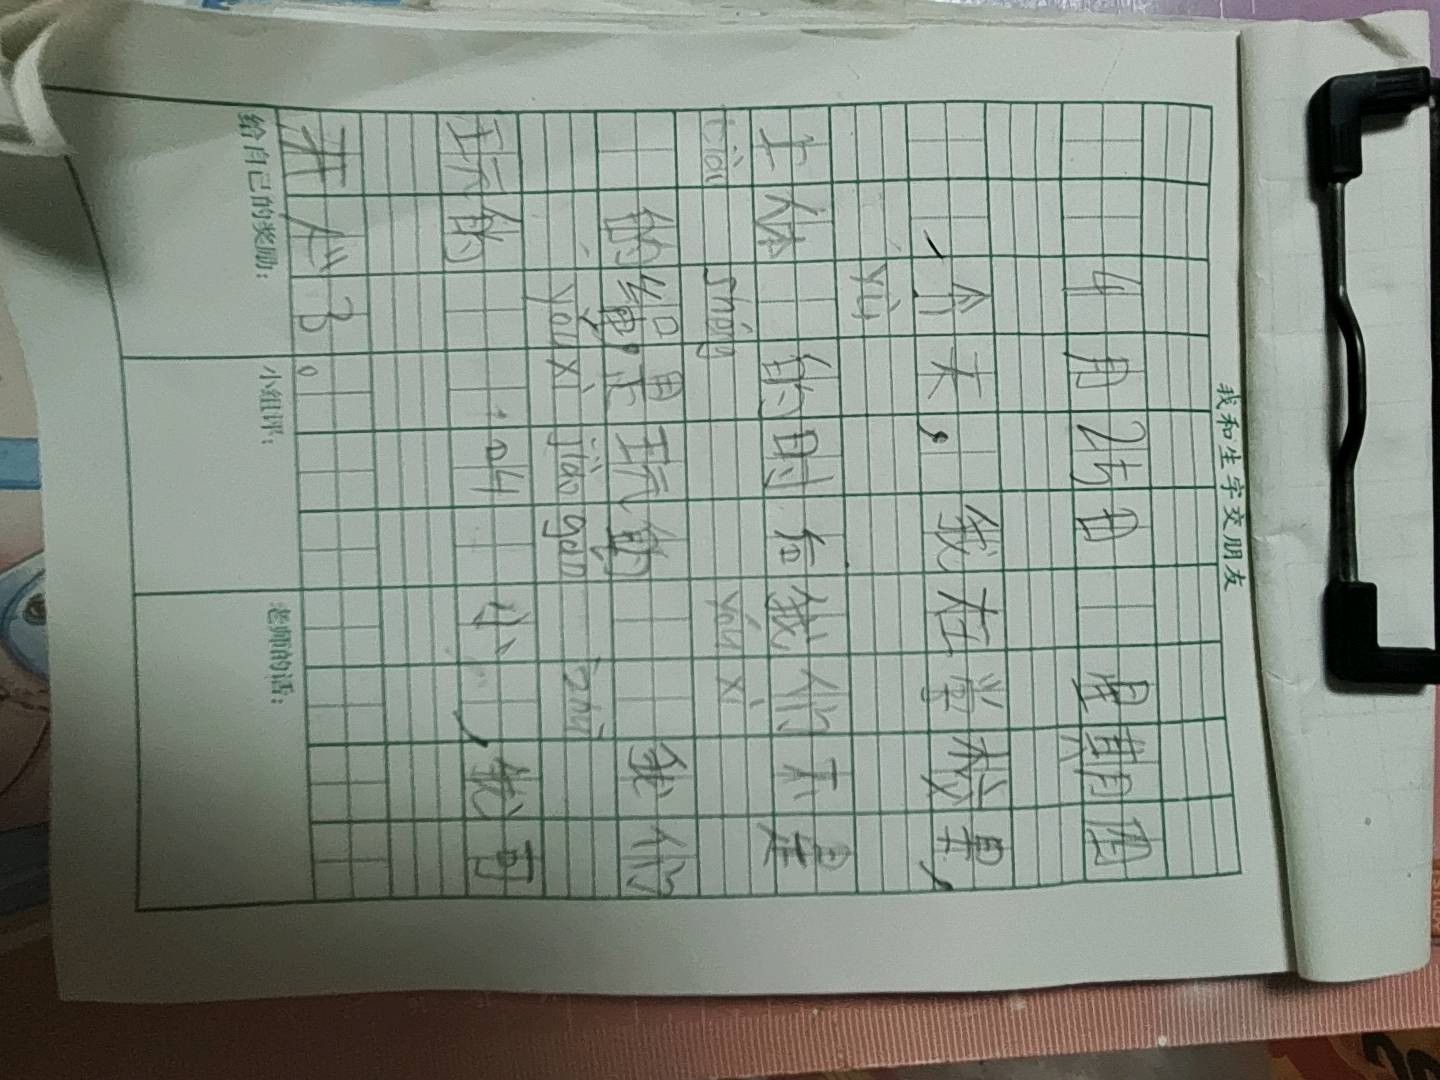 我和生字交朋友
4月25日 星期四
今天,我在学校里,
yù
上体 的时后我们不是
tiào shéng yóu xì
的绳,是玩的 我们
yóu xì jiāo gǎn
玩的 小 ,我可
开心了。
给自己的奖励:
小组评:
老师的话: